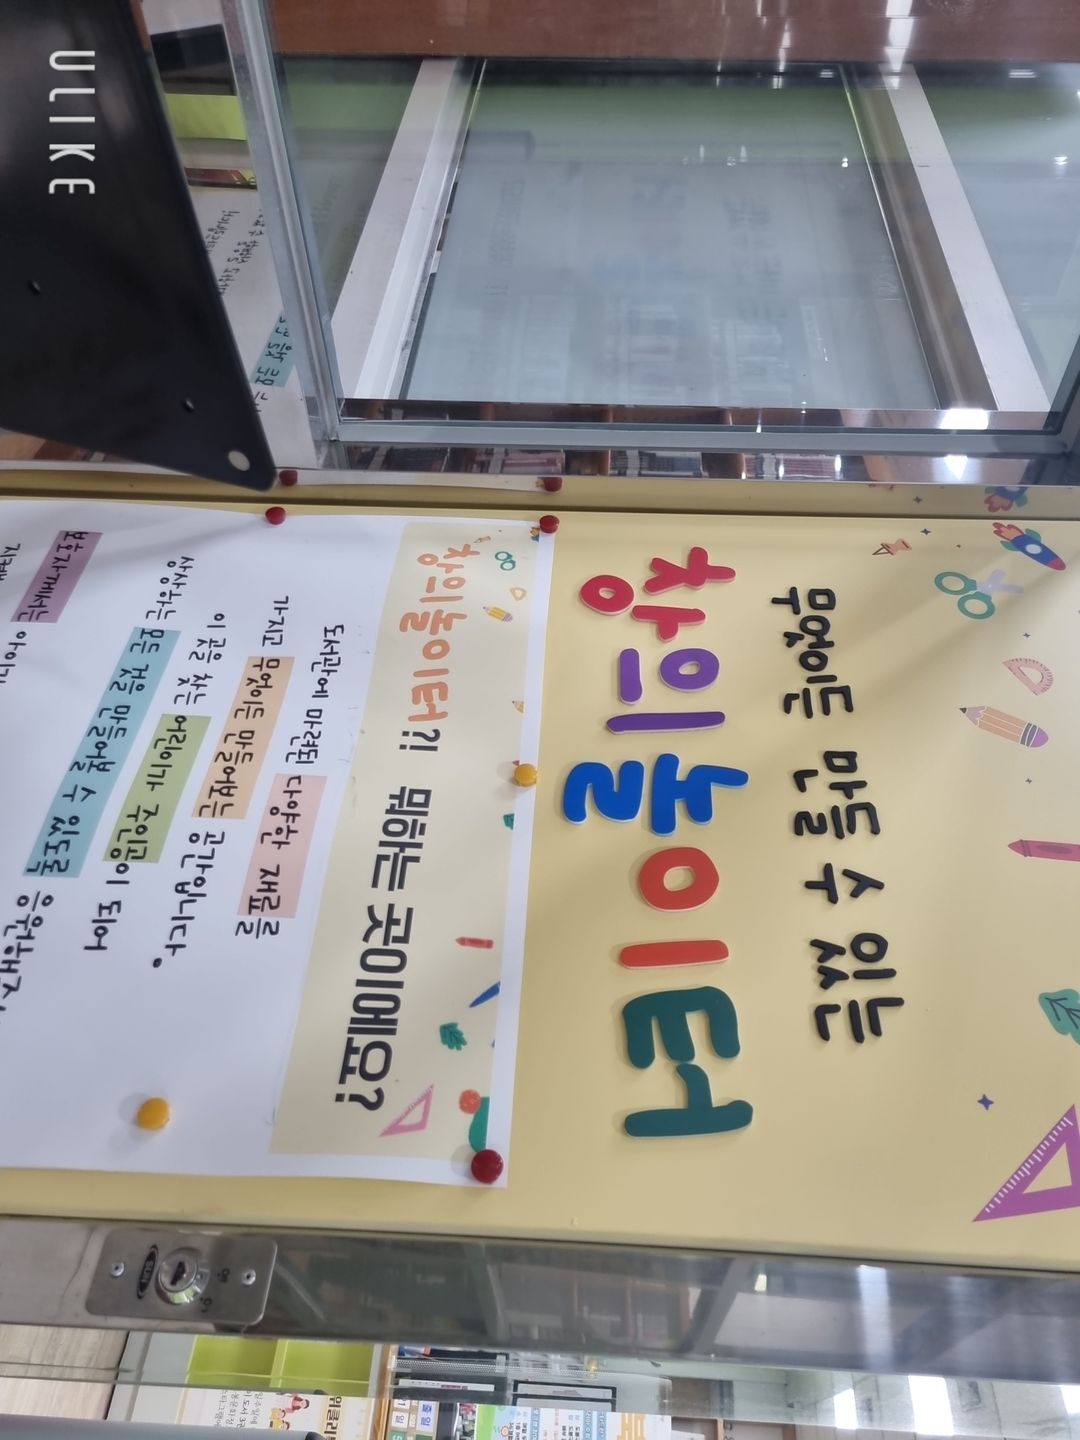 무엇이든 만들 수 있는
창의놀이터
창의놀이터?! 뭐하는 곳이에요?
도서관에 마련된 다양한 재료를
가지고 무엇이든 만들어보는 공간입니다.
이 곳을 찾는 어린이가 주인공이 되어
상상하는 모든 것을 만들어볼 수 있도록 응원해주
보호자께서는
SUN
ULIKE